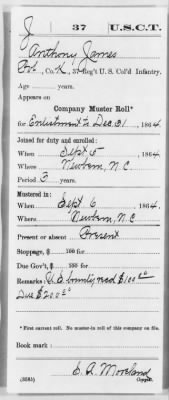 J 37 U.S.C.T.
Anthony James
Pvt., Co. K, 37 Reg't U. S. Col'd Infantry.
Age years.
Appears on
Company Muster Roll*
for Enlistment to Dec 31, 1864.
Joined for duty and enrolled:
When Sept 5, 1864.
Where Newbern, N.C.
Period 3 years.
Mustered in:
When Sept 6, 1864.
Where Newbern, N.C
Present or absent Present
Stoppage, $ 100 for
Due Gov't, $ 100 for
Remarks: U.S. bounty rec'd $100.00
Due $200.00
* First current roll. No muster-in roll of this company on file.
Book mark:
E. A. Moreland
(358i) Copyist.